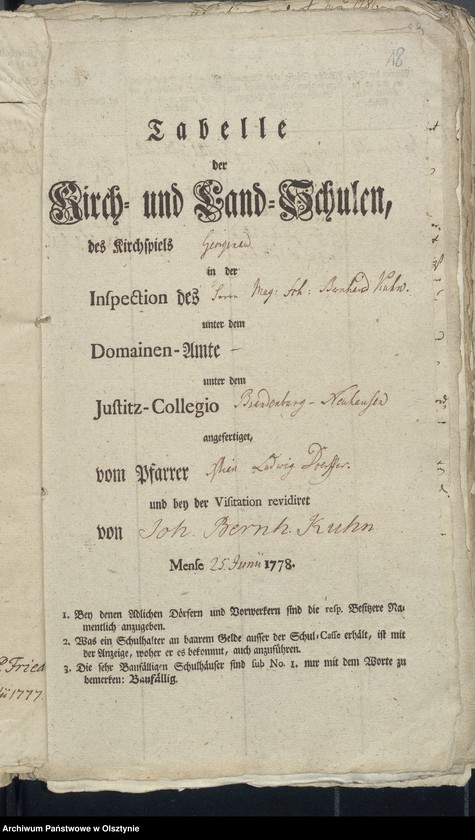 18
Tabelle
der
Kirch- und Land-Schulen,
des Kirchspiels Georgenau
in der
Inspection des Herrn Mag: Joh: Bernhard Kuhn.
unter dem
Domainen-Amte -
unter dem
Justitz-Collegio Brandenburg - Neuhausen
angefertiget,
vom Pfarrer Ludwig
und bey der Visitation revidiret
von Joh. Bernh. Kuhn
Mense 25. Junii 1778.
1. Bey denen Adlichen Dörfern und Vorwerkern sind die resp. Besitzere Na-
mentlich anzugeben.
2. Was ein Schulhalter an baarem Gelde ausser der Schul-Casse erhält, ist mit
der Anzeige, woher er es bekommt, auch anzuführen.
3. Die sehr Baufälligen Schulhäuser sind sub No. 1. nur mit dem Worte zu
bemerken: Baufällig.
Fried
1777
Archiwum Państwowe w Olsztynie